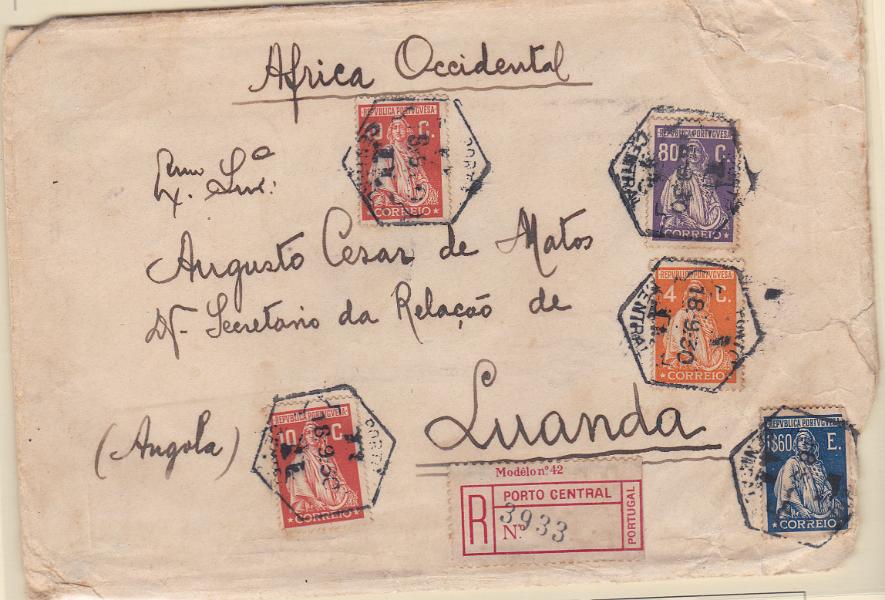 Africa Occidental
Exmo Snr.
Augusto Cesar de Matos
Dº Secretario da Relação de
Luanda
(Angola)
REPUBLICA PORTUGUESA
C.
CORREIO
REPUBLICA PORTUGUESA
80 C.
CORREIO
CENTRAL
REPUBLICA PORTUGUESA
4 C.
CORREIO
PORTO
18.9.30
CENTRAL
REPUBLICA PORTUGUESA
10 C.
CORREIO
PORTO
18.9.30
REPUBLICA PORTUGUESA
1$60 E.
CORREIO
Modêlo nº 42
R
PORTO CENTRAL
Nº 3933
PORTUGAL